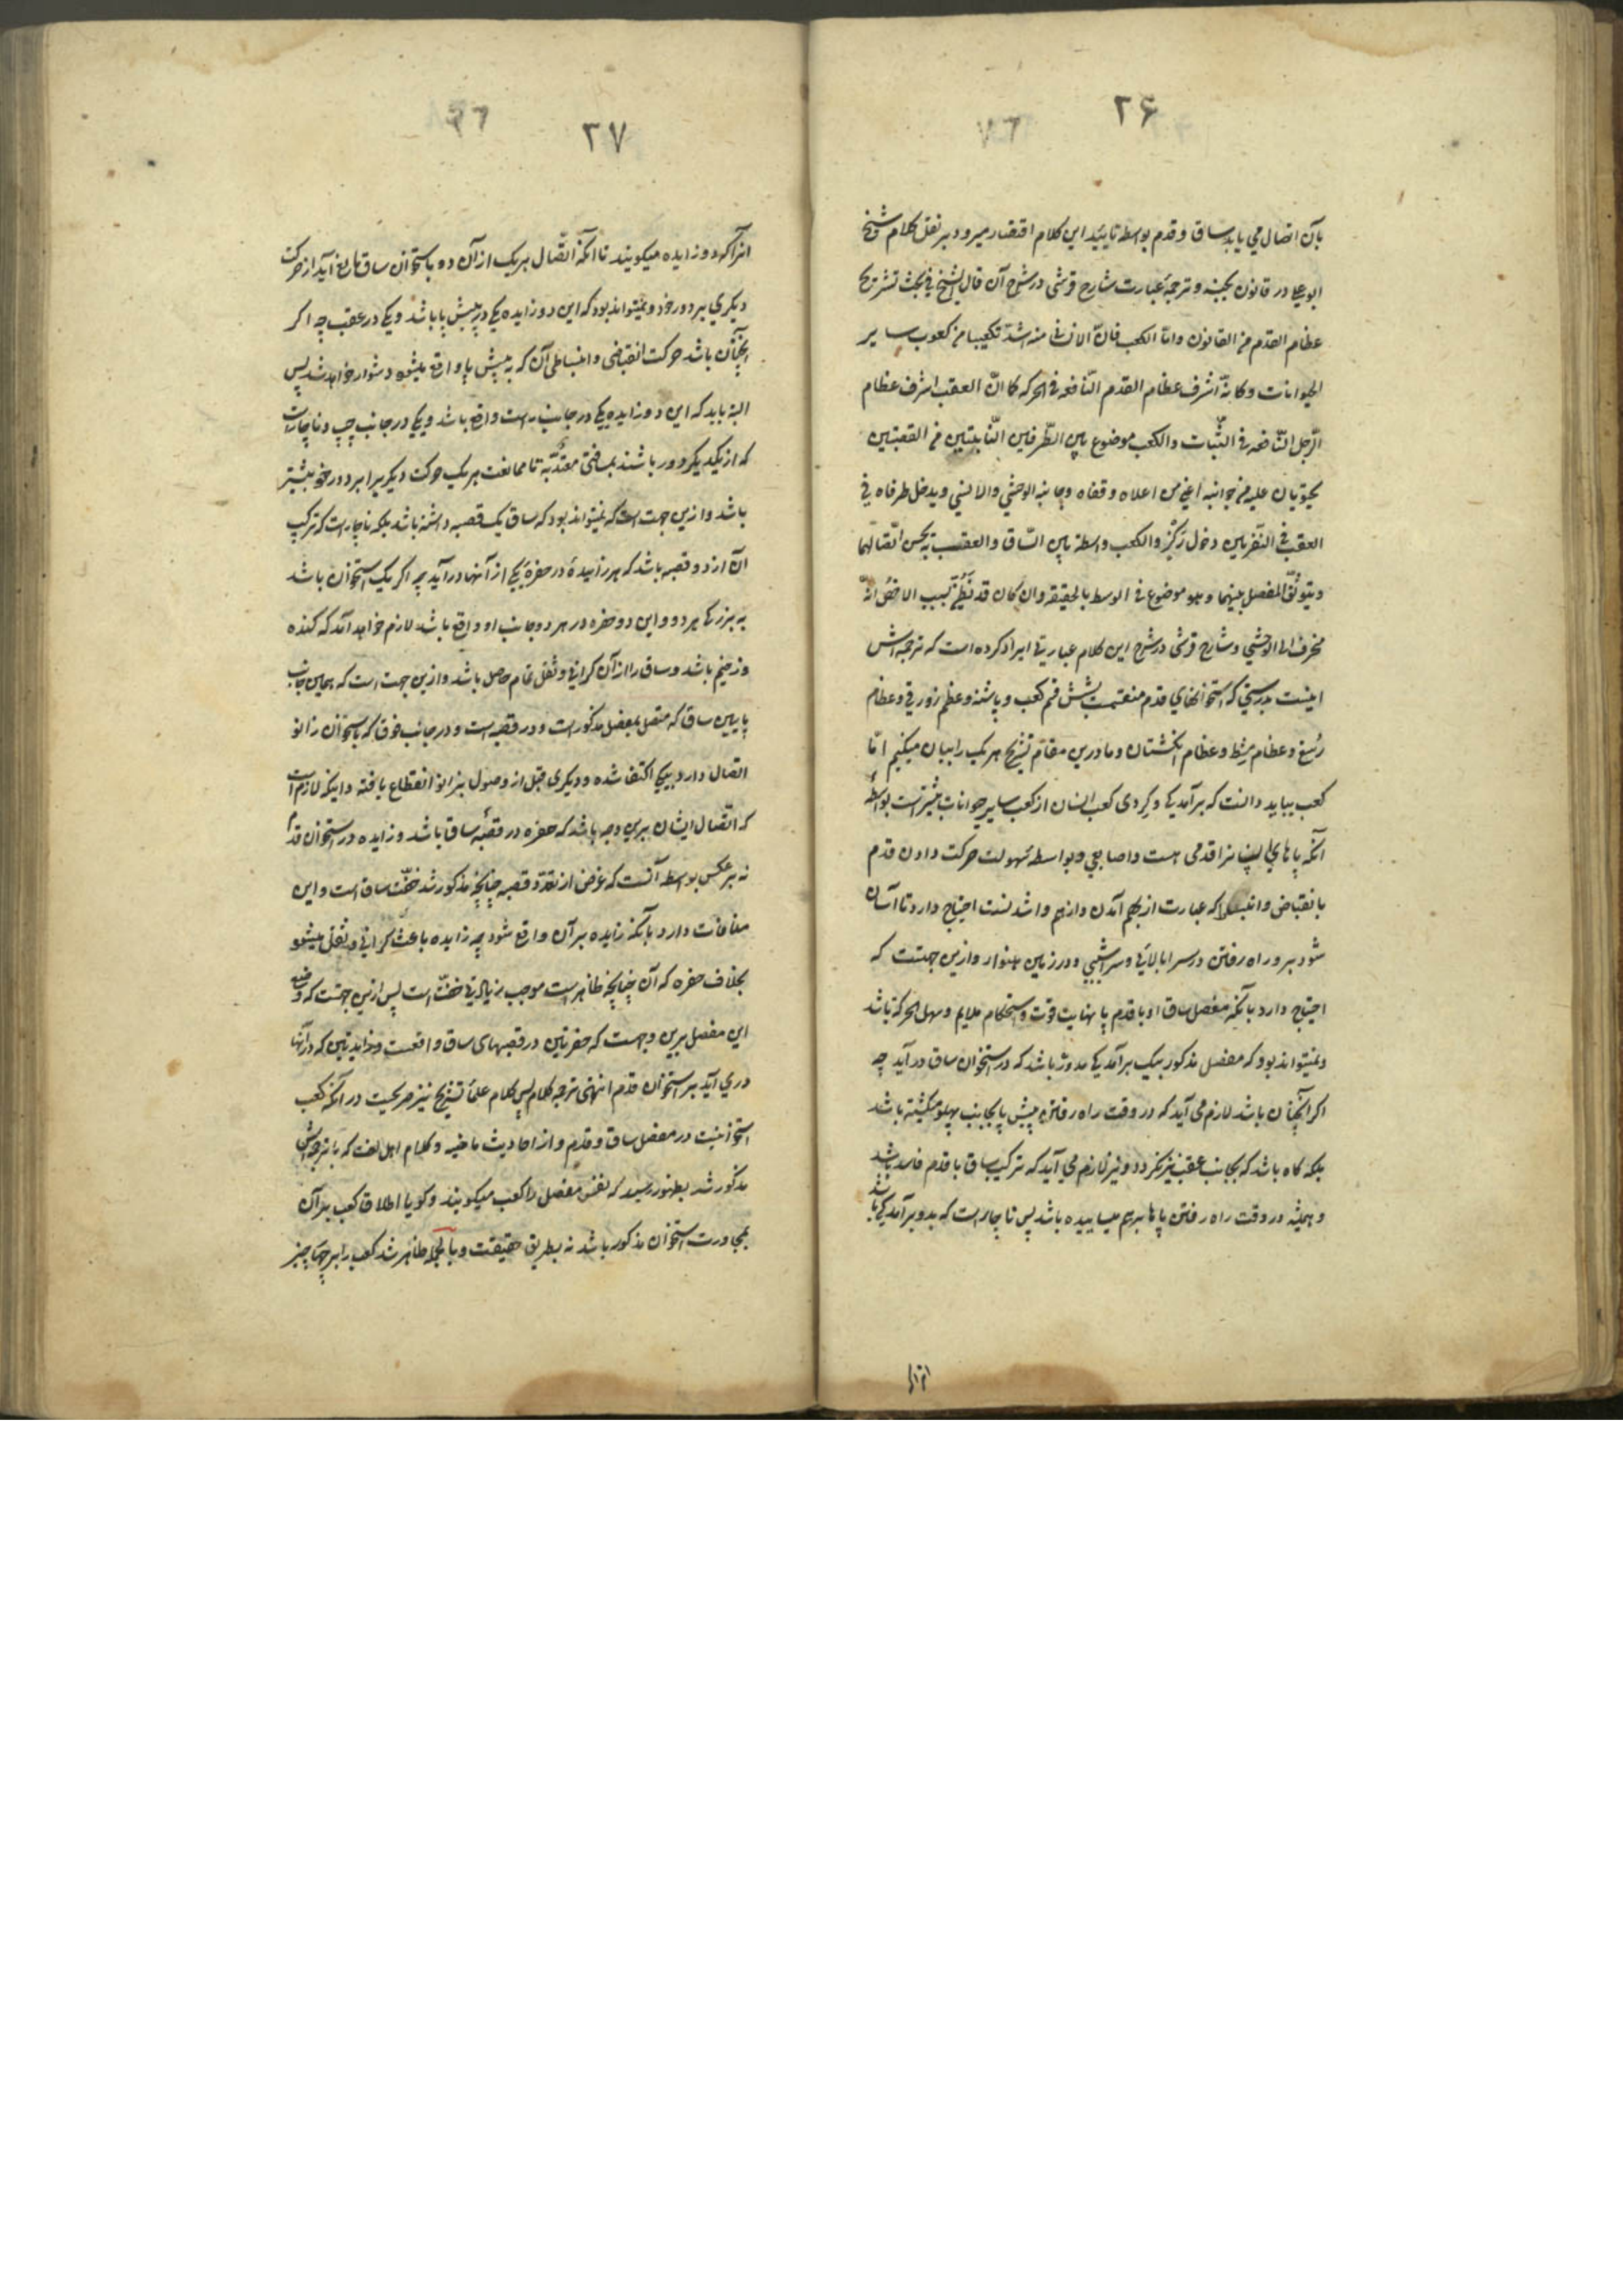 ۲۶
بآن اتصال می یابد ساق و قدم بواسطه تایید این کلام اقتصار میرود بر نقل کلام شیخ
ابو علی در قانون بجنسه و ترجمهٔ عبارت شارح قرشی در شرح آن قال الشیخ فی بحث تشریح
عظام القدم من القانون و امّا الکعب فانّ الانسانی منه اشدّ تکعیبا من کعوب سایر
الحیوانات و کانّه اشرف عظام القدم النّافعه فی الحرکه کما انّ العقب اشرف عظام
الرّجل النّافعه فی الثّبات و الکعب موضوع بین الطّرفین النّابتین من القصبتین
یحتویان علیه من جوانبه اعنی من اعلاه و قفاه و جانبه الوحشی و الانسی و یدخل طرفاه فی
العقب فی النقرتین دخول رکز و الکعب واسطة بین السّاق و العقب به یحسن اتّصالهما
و یتوثّق المفصل بینهما و هو موضوع فی الوسط بالحقیقه و ان کان قد یُظنّ بسبب الاخمص انّه
منحرف الی الوحشی و شارح قرشی در شرح این کلام عبارتی ایراد کرده است که ترجمه اش
اینست بدرستی که استخوانهای قدم منقسمست بشش قسم کعب و پاشنه و عظم زورقی و عظام
رسغ و عظام مشط و عظام انکشتان و ما درین مقام تشریح هر یک را بیان میکنیم امّا
کعب بباید دانست که برآمدکی و کِردی کعب انسان از کعب سایر حیوانات بیشتر است بواسطهٔ
آنکه پاهای انسان را قدمی هست و اصابعی و بواسطهٔ سهولت حرکت دادن قدم
بانقباض و انبساط که عبارت از بهم آمدن و از هم واشدنست احتیاج دارد تا آسان
شود بر و راه رفتن در سرابالائی و سراشیبی و در زمین هموار و ازین جهتست که
احتیاج دارد بآنکه مفصل ساق او با قدم با نهایت قوّت و استحکام ملایم و سهل الحرکة باشد
و نمیتواند بود که مفصل مذکور بیک برآمدکی مدوّر باشد که در استخوان ساق درآید چه
اکر آنچنان باشد لازم می آید که در وقت راه رفتن پیش پا بجانب پهلو میکشته باشد
بلکه کاه باشد که بجانب عقب نیز بگردد و نیز لازم می آید که ترکیب ساق با قدم فاسد باشد
و همیشه در وقت راه رفتن پاها بر هم میساییده باشد پس ناچار است که بدو برآمدکی باشد
۲۷
انرا که دو زایده میکویند تا آنکه اتّصال هر یک از آن دو باستخوان ساق مانع آید از حرکت
دیکری بر دور خود و نمیتواند بود که این دو زایده یکی در پیش پا باشد و یکی در عقب چه اکر
آنچنان باشد حرکت انقباضی و انبساطی آن که به پیش پا واقع میشود دشوار خواهد شد پس
البته باید که این دو زایده یکی در جانب راست واقع باشد و یکی در جانب چپ و ناچارست
که از یکدیکر دور باشند بمسافتی معتدّبه تا ممانعت هر یک حرکت دیکری را بر دور خود بیشتر
باشد و ازین جهت است که نمیتواند بود که ساق یک قصبه داشته باشد بلکه ناچار است که ترکیب
آن از دو قصبه باشد که هر زایدهٔ در حفرهٔ یکی از آنها درآید چه اکر یک استخوان باشد
به بزرکی هر دو و این دو حفره در هر دو جانب او واقع باشد لازم خواهد آمد که کنده
و زخیم باشد و ساق را از آن کرانی و ثقل تمام حاصل باشد و ازین جهت است که همین جانب
پایین ساق که متصل بمفصل مذکور است و دو قصبه است و در جانب فوق که باستخوان زانو
اتصال دارد بیکی اکتفا شده و دیکری قبل از وصول بزانو انقطاع یافته و اینکه لازم است
که اتّصال ایشان برین وجه باشد که حفره در قصبهٔ ساق باشد و زایده در استخوان قدم
نه بر عکس بواسطه آنست که غرض از تعدّد قصبه چنانچه مذکور شد خفّت ساق است و این
منافات دارد بآنکه زایده بر آن واقع شود چه زایده باعث کرانی و ثقل میشود
بخلاف حفره که آن چنانچه ظاهر است موجب زیادتی خفّت است پس ازین جهتست که وضع
این مفصل برین وجهست که حفرتین در قصبهای ساق واقعست و زایدتین که در آنها
در می آید بر استخوان قدم انتهی ترجمه کلامه پس کلام علمأ تشریح نیز صریحست در آنکه کعب
استخوانیست در مفصل ساق و قدم و از احادیث ماضیه و کلام اهل لغت که با ترجمه اش
مذکور شد بظهور رسید که نفس مفصل را کعب میکویند و کویا اطلاق کعب بر آن
بمجاورت استخوان مذکور باشد نه بطریق حقیقت و بالجمله ظاهر شد کعب را بر چهار چیز